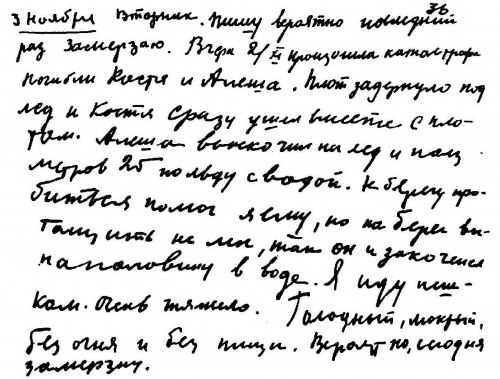 36
3 Ноября Вторник. Пишу вероятно последний
раз Замерзаю. Вчера 2/XI произошла катастрофа
погибли Костя и Алеша. Плот задернуло под
лед и Костя сразу ушел вместе с пло-
том. Алеша выскочил на лед и полз
метров 25 по льду с водой. К берегу про-
биться помог я ему, но на берег вы-
тащить не мог, так он и закоченел
наполовину в воде. Я иду пеш-
ком. Очень тяжело. Голодный, мокрый,
без огня и без пищи. Вероятно, сегодня
замерзну.